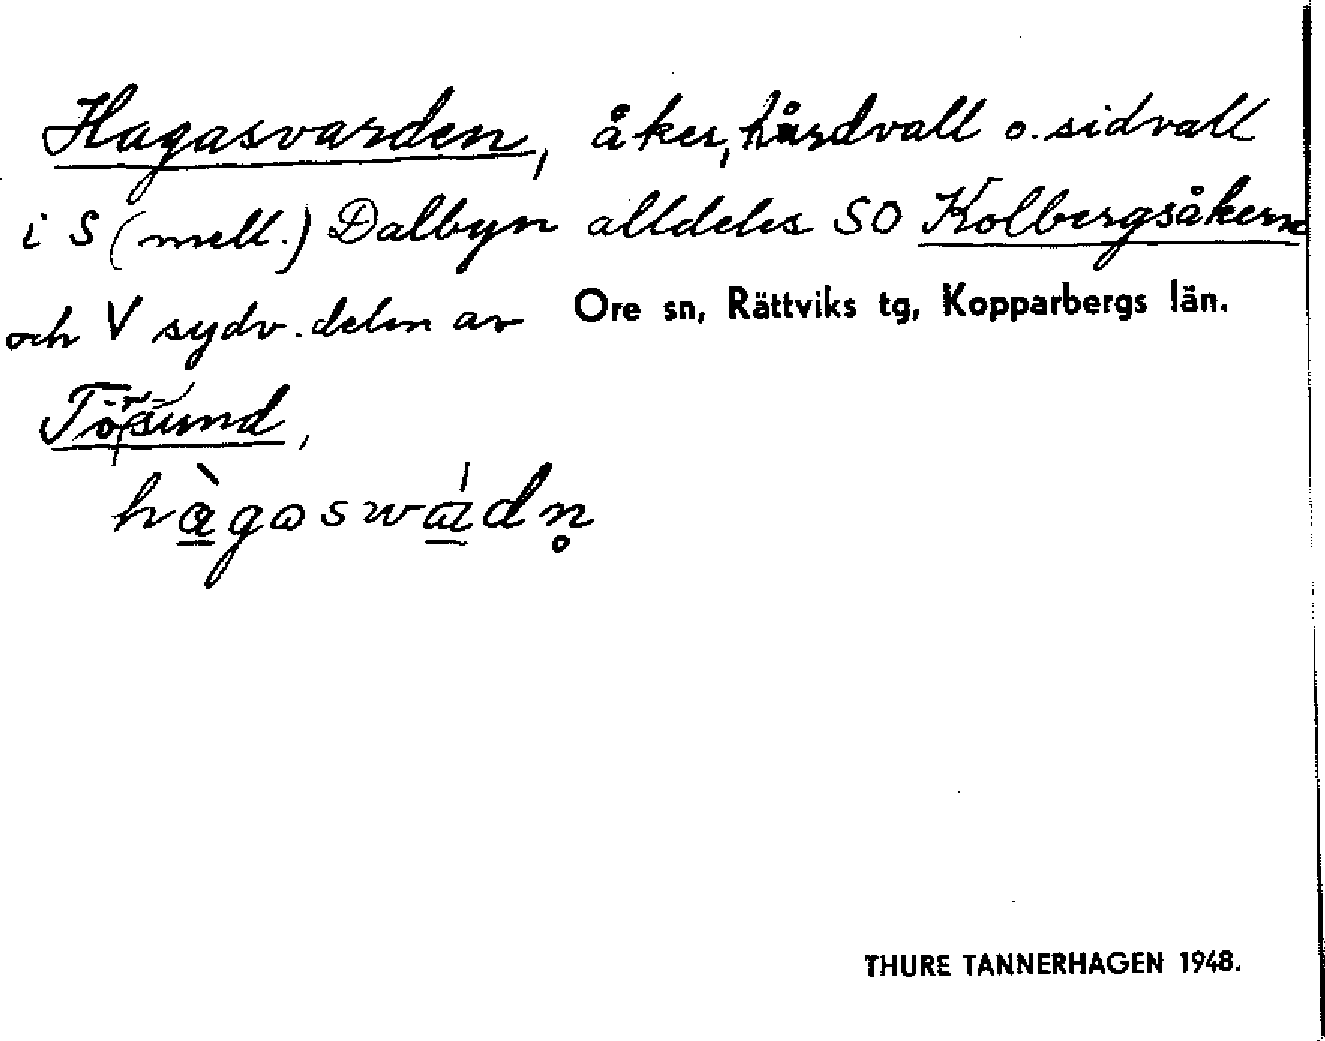 Hagasvarden, åker, hårdvall o. sidvall
i S (mell.) Dalbyn alldeles SO Kolbergsåkern
och V sydv. delen av Ore sn, Rättviks tg, Kopparbergs län.
Törsund,
hàgaswádn̥
THURE TANNERHAGEN 1948.